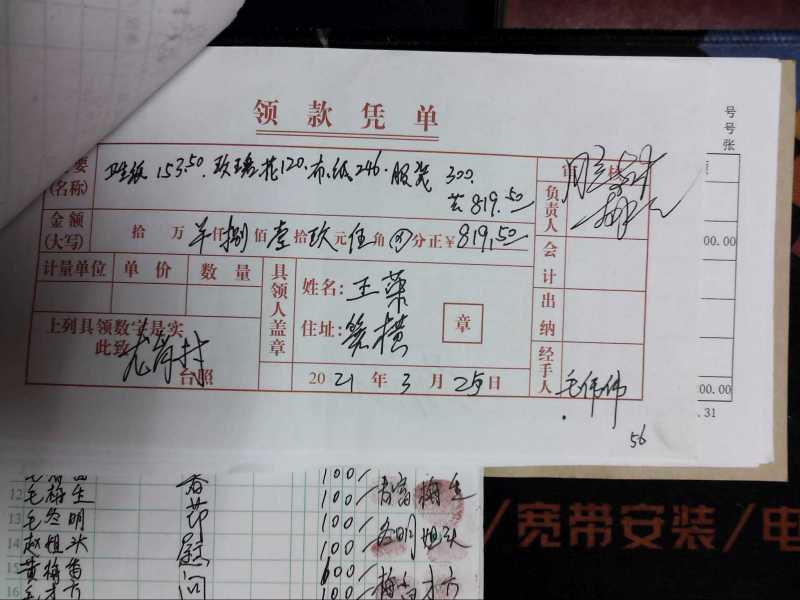 领款凭单
要 卫生纸 153.50. 玻璃花120. 布.纸246. 服装 300.
(名称) 共819.50
负责人
金额
(大写) 拾 万 仟捌佰壹拾玖元伍角 分正¥819.50
计量单位 单价 数量 具领人盖章 姓名: 王荣 会计
住址: 箬横 章 出纳
上列具领数字是实
此致
台照 2021年3月25日 经手人 毛伟伟
56
号
号
张
00.00
200.00
.31
100/
12 毛梅生 春 100/ 梅生
13 毛冬明 节 100/ 冬明
14 赵姐头 慰 100/ 姐头
15 黄梅香 问 100/
16 毛才方 100/ 才方
/宽带安装/电